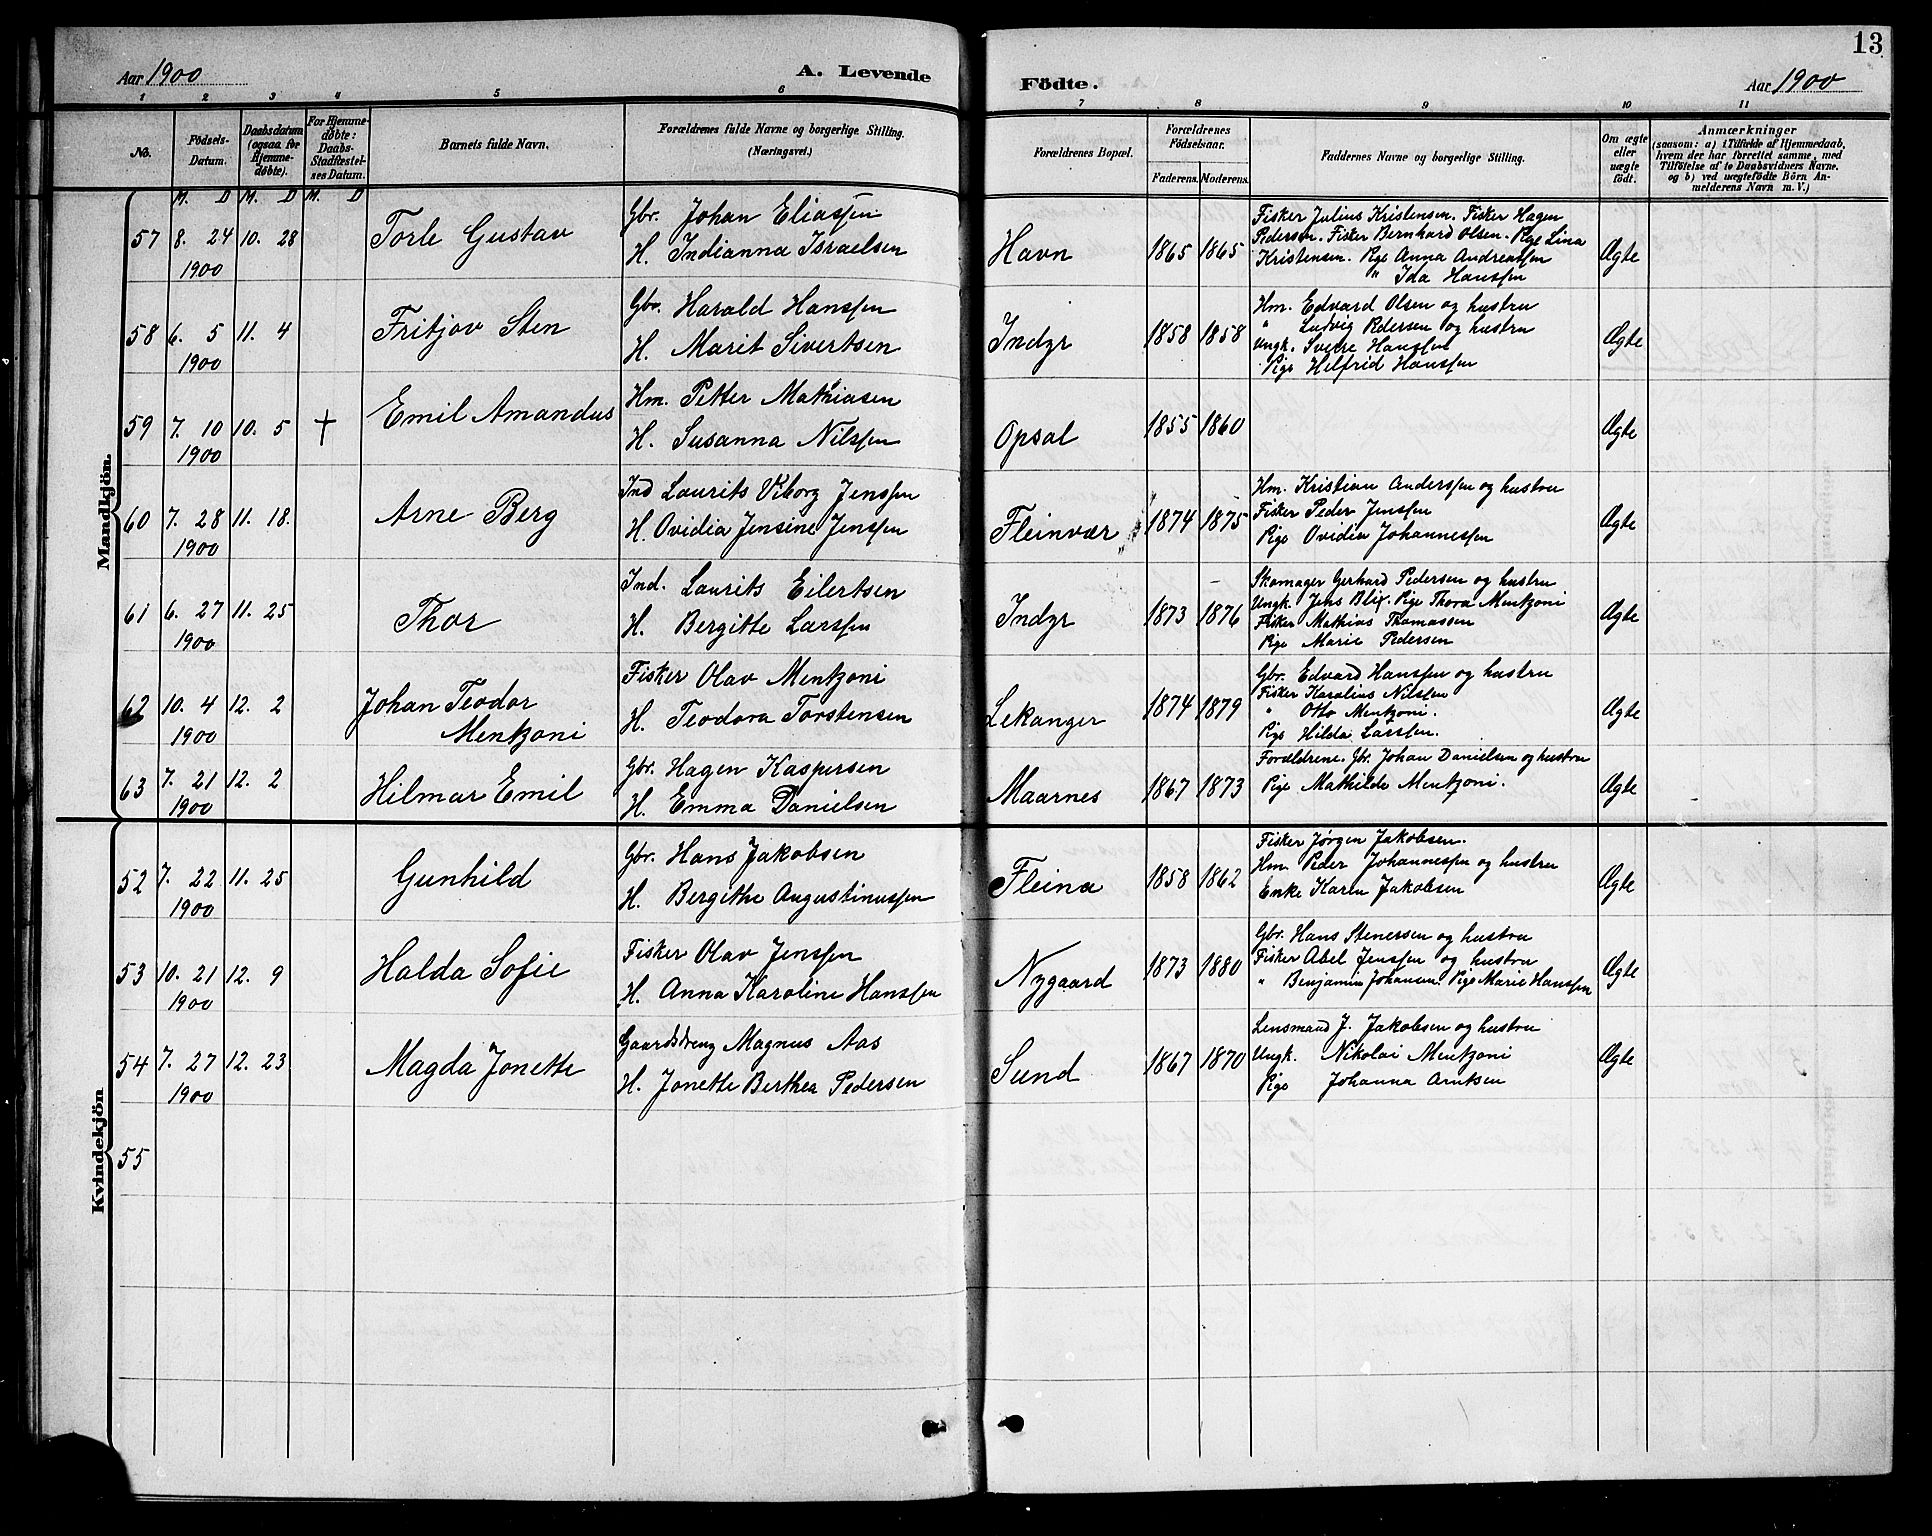 13
Aar 1900
A. Levende
Födte.
Aar 1900
1 2 3 4 5 6 7 8 9 10 11
No.
Födsels-
Datum.
Daabsdatum
(ogsaa for
Hjemme-
döbte).
For Hjemme-
döbte:
Daabs-
Stadfæstel-
ses Datum.
Barnets fulde Navn.
Forældrenes fulde Navne og borgerlige Stilling.
(Næringsvei.)
Forældrenes Bopæl.
Forældrenes
Födselsaar.
Faderens.
Moderens.
Faddernes Navne og borgerlige Stilling.
Om ægte
eller
uægte
födt.
Anmærkninger
(saasom: a) i Tilfælde af Hjemmedaab,
hvem der har forrettet samme, med
Tilföielse af to Daabsvidners Navne,
og b) ved uægtefödte Börn An-
melderens Navn m. V.)
M. D M. D M. D
Mandkjön.
57 8. 24 10. 28
1900
Torle Gustav
Gbr. Johan Eliassen
H. Indianna Israelsen
Havn
1865 1865
Fisker Julius Kristensen. Fisker Hagen
Pedersen. Fisker Bernhard Olsen. Pige Lina
Kristensen. Pige Anna Andreassen
" Ida Hanssen
Ægte
58 6. 5 11. 4
1900
Fritjov Sten
Gbr. Harald Hanssen
H. Marit Sivertsen
Indyr
1858 1858
Hm. Edvard Olsen og hustru
" Ludvig Pedersen og hustru
Ungk. Sverre Hanssen
Pige Helfrid Hanssen
Ægte
59 7. 10 10. 5 †
1900
Emil Amandus
Hm. Petter Mathiasen
H. Susanna Nilssen
Opsal
1855 1860
Ægte
60 7. 28 11. 18.
1900
Arne Berg
Ind Laurits Viborg Jenssen
H. Ovidia Jensine Jenssen
Fleinvær
1874 1875
Hm. Kristian Anderssen og hustru
Fisker Peder Jenssen
Pige Ovidia Johannessen
Ægte
61 6. 27 11. 25
1900
Thor
Ind. Laurits Eilertsen
H. Bergitte Larssen
Indyr
1873 1876
Skomager Gerhard Pedersen og hustru
Ungk. Jens Blix. Pige Thora Mentzoni
Fisker Mathias Thomassen
Pige Marie Pedersen
Ægte
62 10. 4 12. 2
1900
Johan Teodor
Mentzoni
Fisker Olav Mentzoni
H. Teodora Torstensen
Lekanger
1874 1879
Gbr. Edvard Hanssen og hustru
Fisker Karolius Nilssen
" Otto Mentzoni.
Pige Hilda Larssen.
Ægte
63 7. 21 12. 2
1900
Hilmar Emil
Gbr. Hagen Kaspersen
H. Emma Danielsen
Maarnes
1867 1873
Forældrene. Gbr. Johan Danielsen og hustru
Pige Mathilde Mentzoni.
Ægte
Kvindekjön
52 7. 22 11. 25
1900
Gunhild
Gbr. Hans Jakobsen
H. Bergithe Augustinussen
Fleina
1858 1862
Fisker Jørgen Jakobsen.
Hm. Peder Johannessen og hustru
Enke Karen Jakobsen
Ægte
53 10. 21 12. 9
1900
Halda Sofie
Fisker Olav Jenssen
H. Anna Karoline Hanssen
Nygaard
1873 1880
Gbr. Hans Stenersen og hustru
Fisker Abel Jenssen og hustru
" Benjamin Johansen. Pige Marie Hanssen
Ægte
54 7. 27 12. 23
1900
Magda Jonette
Gaardsdreng Magnus Aas
H. Jonette Berthea Pedersen
Sund
1867 1870
Lensmand J. Jakobsen og hustru
Ungk. Nikolai Mentzoni
Pige Johanna Arntsen
Ægte
55